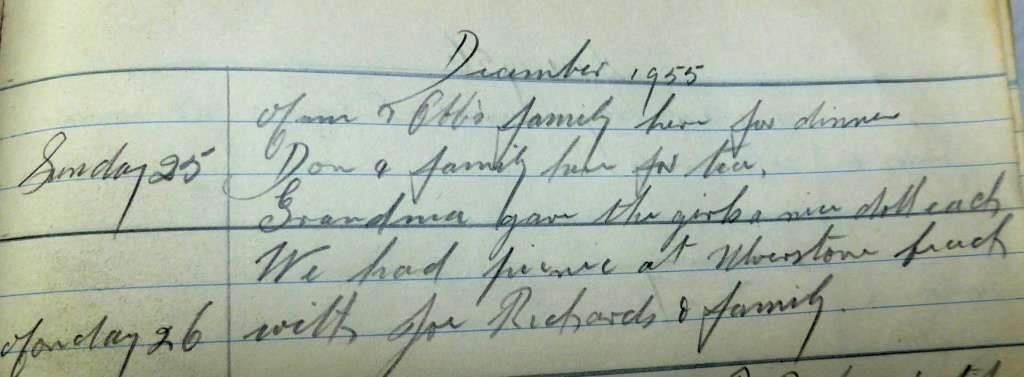 December 1955
& Otto's family here for dinner
Sunday 25 Don & family here for tea.
Grandma gave the girls a nice doll each
We had picnic at Ulverstone beach
Monday 26 with Joe Richards & family.